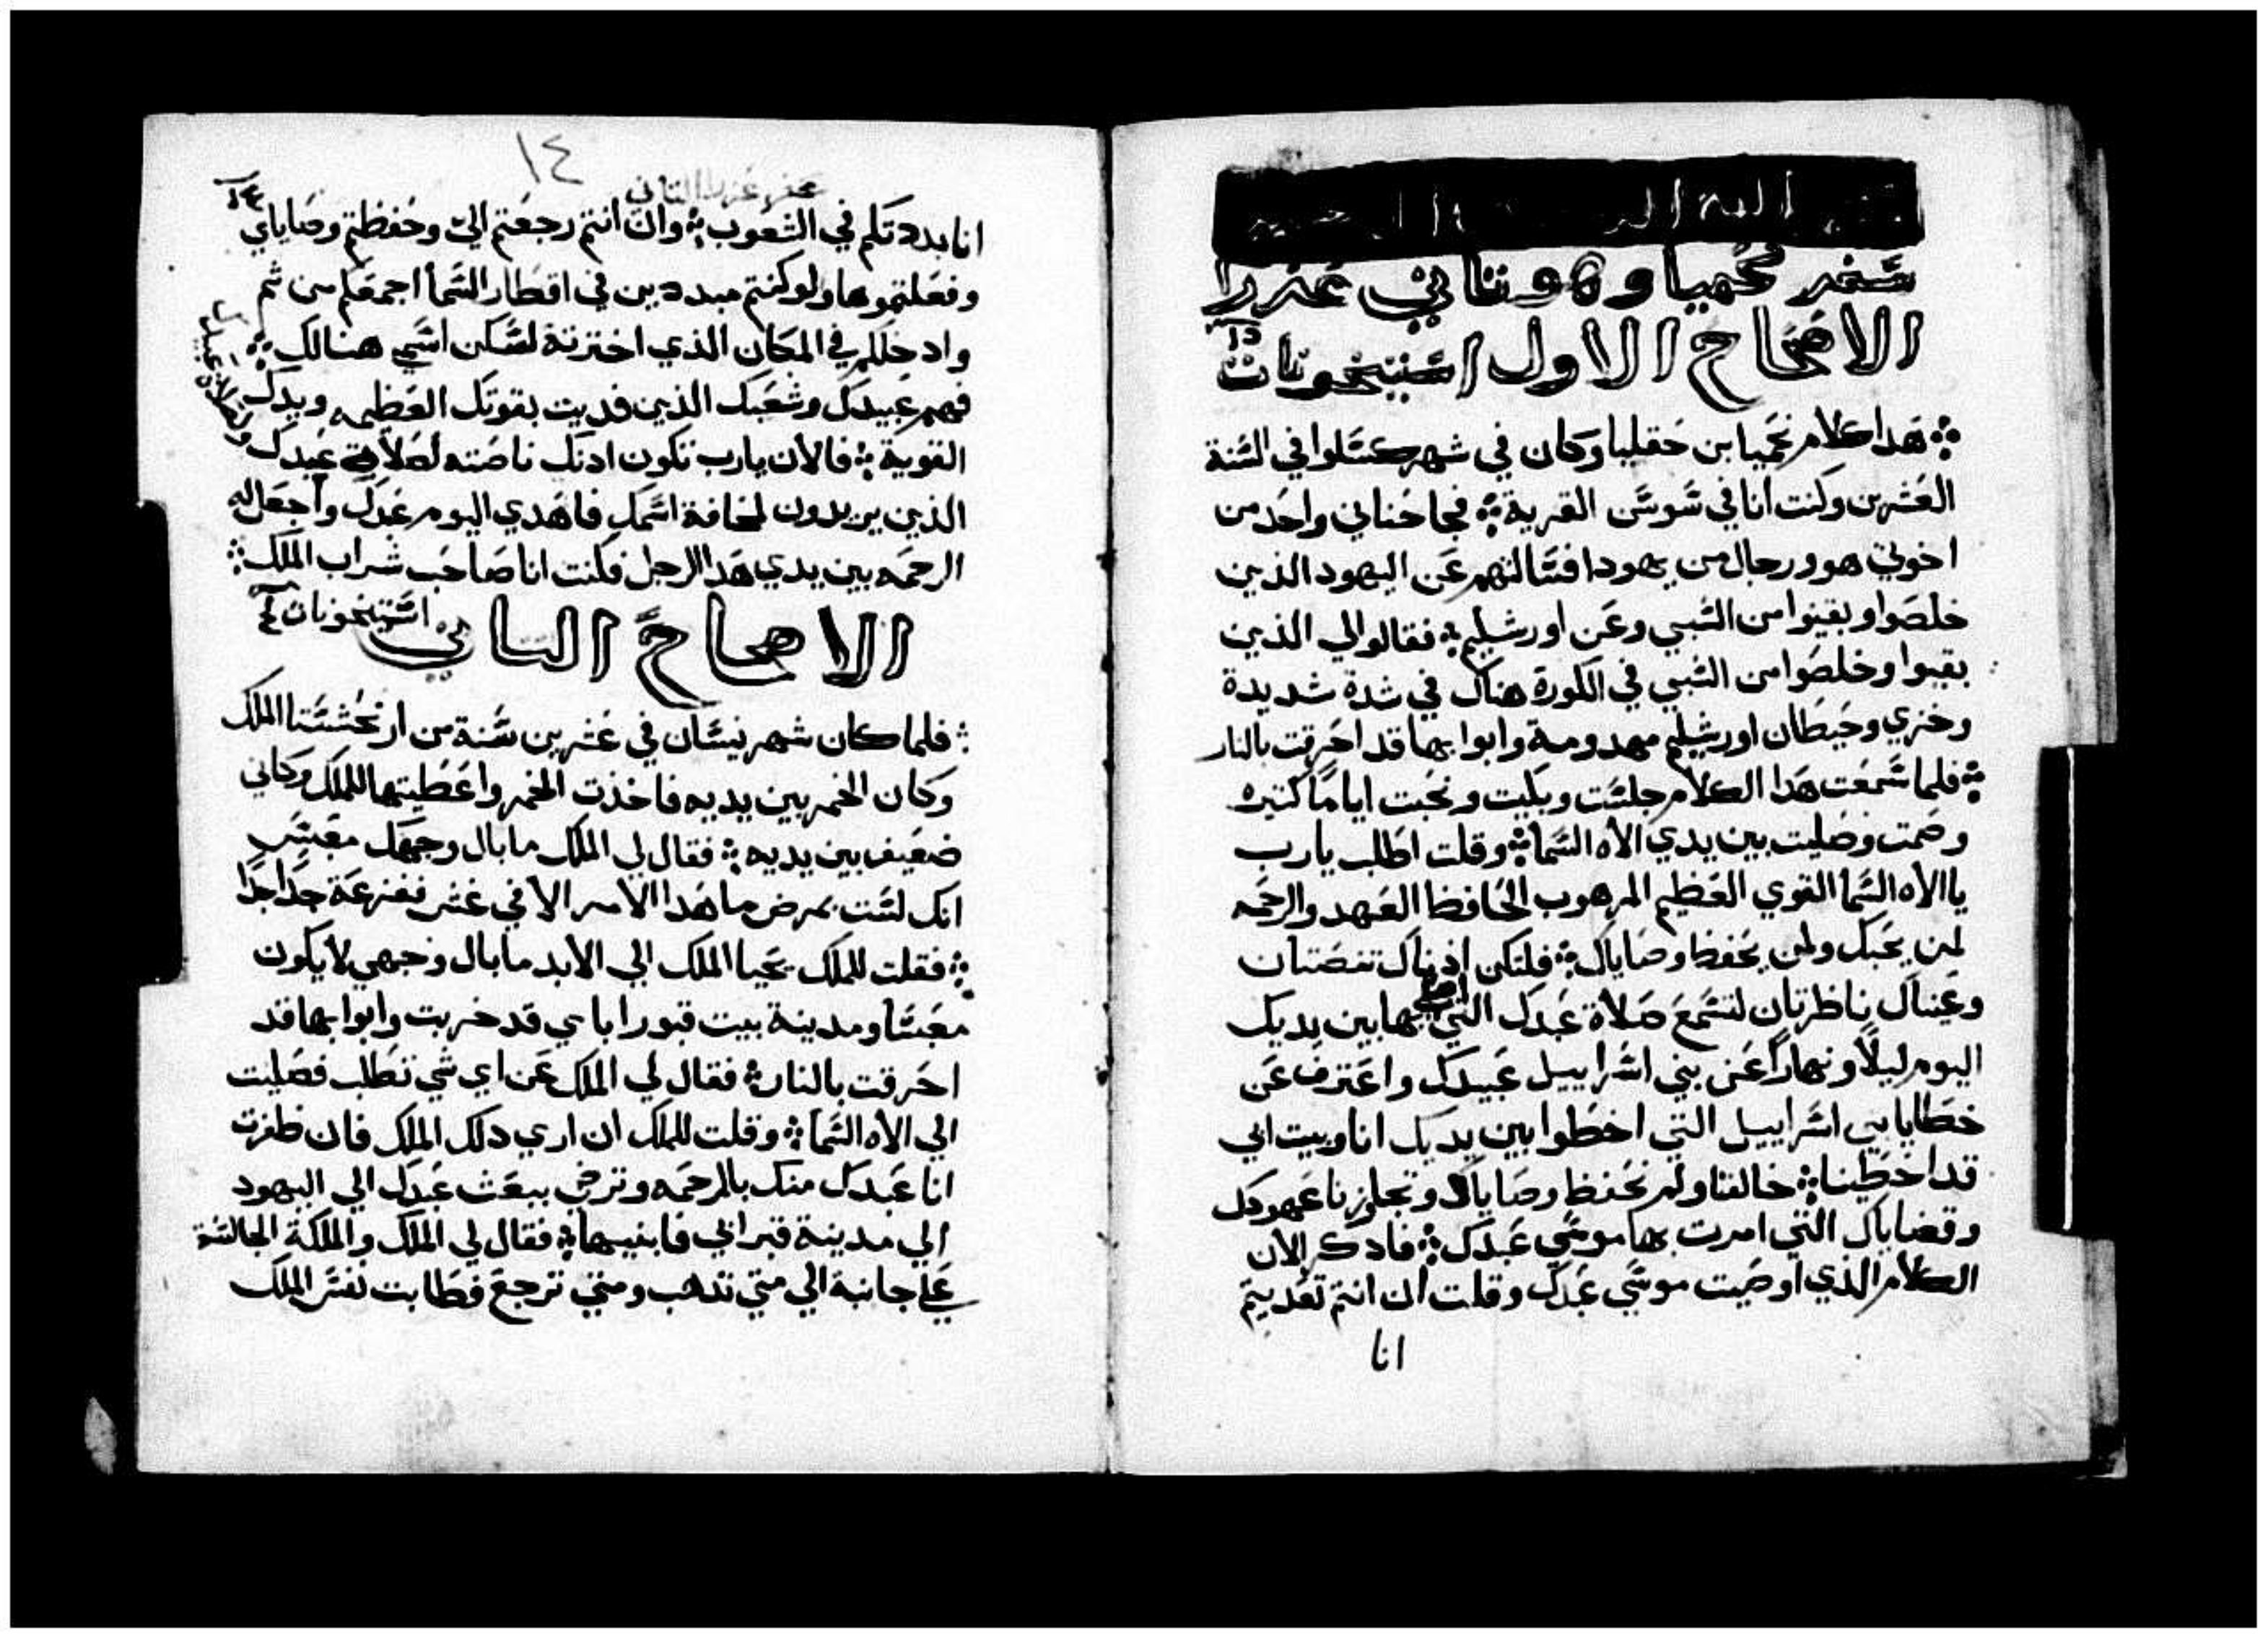 سفر نحميا وهو ثاني عزرا
الاصحاح الاول استيخونات
هدا كلام نحميا ابن حقليا وكان في شهر كسلوا في السنة
العشرين وكنت انا في شوشن القرية فجا حناني واحد من
اخوتي هو ورجال من يهودا فسالتهم عن اليهود الذين
خلصوا وبقيوا من السبي وعن اورشليم فقالوا لي الذين
بقيوا وخلصوا من السبي في الكورة هناك في شدة شديدة
وخزي وحيطان اورشليم مهدومة وابوابها قد احرقت بالنار
فلما سمعت هدا الكلام جلست وبكيت ونحبت اياما كتيره
وصمت وصليت بين يدي الاه السما وقلت اطلب يارب
يا الاه السما القوي العظيم المرهوب الحافظ العهد والرحمه
لمن يحبك ولمن يحفظ وصاياك فلتكن ادناك تنصتان
وعيناك ناظرتان لتسمع صلاة عبدك التي اصلي بها بين يديك
اليوم ليلا ونهارا عن بني اسراييل عبيدك واعترف عن
خطايا بني اسراييل التي اخطوا بين يديك انا وبيت ابي
قد اخطينا خالفنا ولم نحفظ وصاياك وتجاوزنا عهودك
وقضاياك التي امرت بها موسي عبدك فادكر الان
الكلام الذي اوصيت موسي عبدك وقلت ان انتم تعديتم
انا
١٤
سفر عزرا التاني
انا بددتكم في الشعوب وان انتم رجعتم الي وحفظتم وصاياي
وفعلتموها ولو كنتم مبددين في اقطار السما اجمعكم من ثم
وادخلكم في المكان الذي اخترته لسكن اسمي هنالك
فهم عبيدك وشعبك الذين فديت بقوتك العظيمه ويدك
القوية فالان يارب تكون ادنك ناصته لصلاة عبدك
ولصلاة عبيدك
الذين يريدون لمخافة اسمك فاهدي اليوم عبدك واجعل له
الرحمه بين يدي هدا الرجل فكنت انا صاحب شراب الملك
الاصحاح التاني استيخونات
فلما كان شهر نيسان في عشرين سنة من ارتحششتا الملك
وكان الخمر بين يديه فاخذت الخمر واعطيتها للملك وكاني
ضعيف بين يديه فقال لي الملك ما بال وجهك معبس
انك لست بمرض ما هدا الامر الا في غش ففزعة جدا جدا
فقلت للملك يحيا الملك الي الابد ما بال وجهي لا يكون
معبسا ومدينة بيت قبور اباي قد خربت وابوابها قد
احرقت بالنار فقال لي الملك عن اي شي تطلب فصليت
الي الاه السما وقلت للملك ان اري دلك الملك فان ظفرت
انا عبدك منك بالرحمه وترضي ببعث عبدك الي اليهود
الي مدينة قبر ابي فابنيها فقال لي الملك والملكة الجالسة
علي جانبه الي متي تدهب ومتي ترجع فطابت نفس الملك